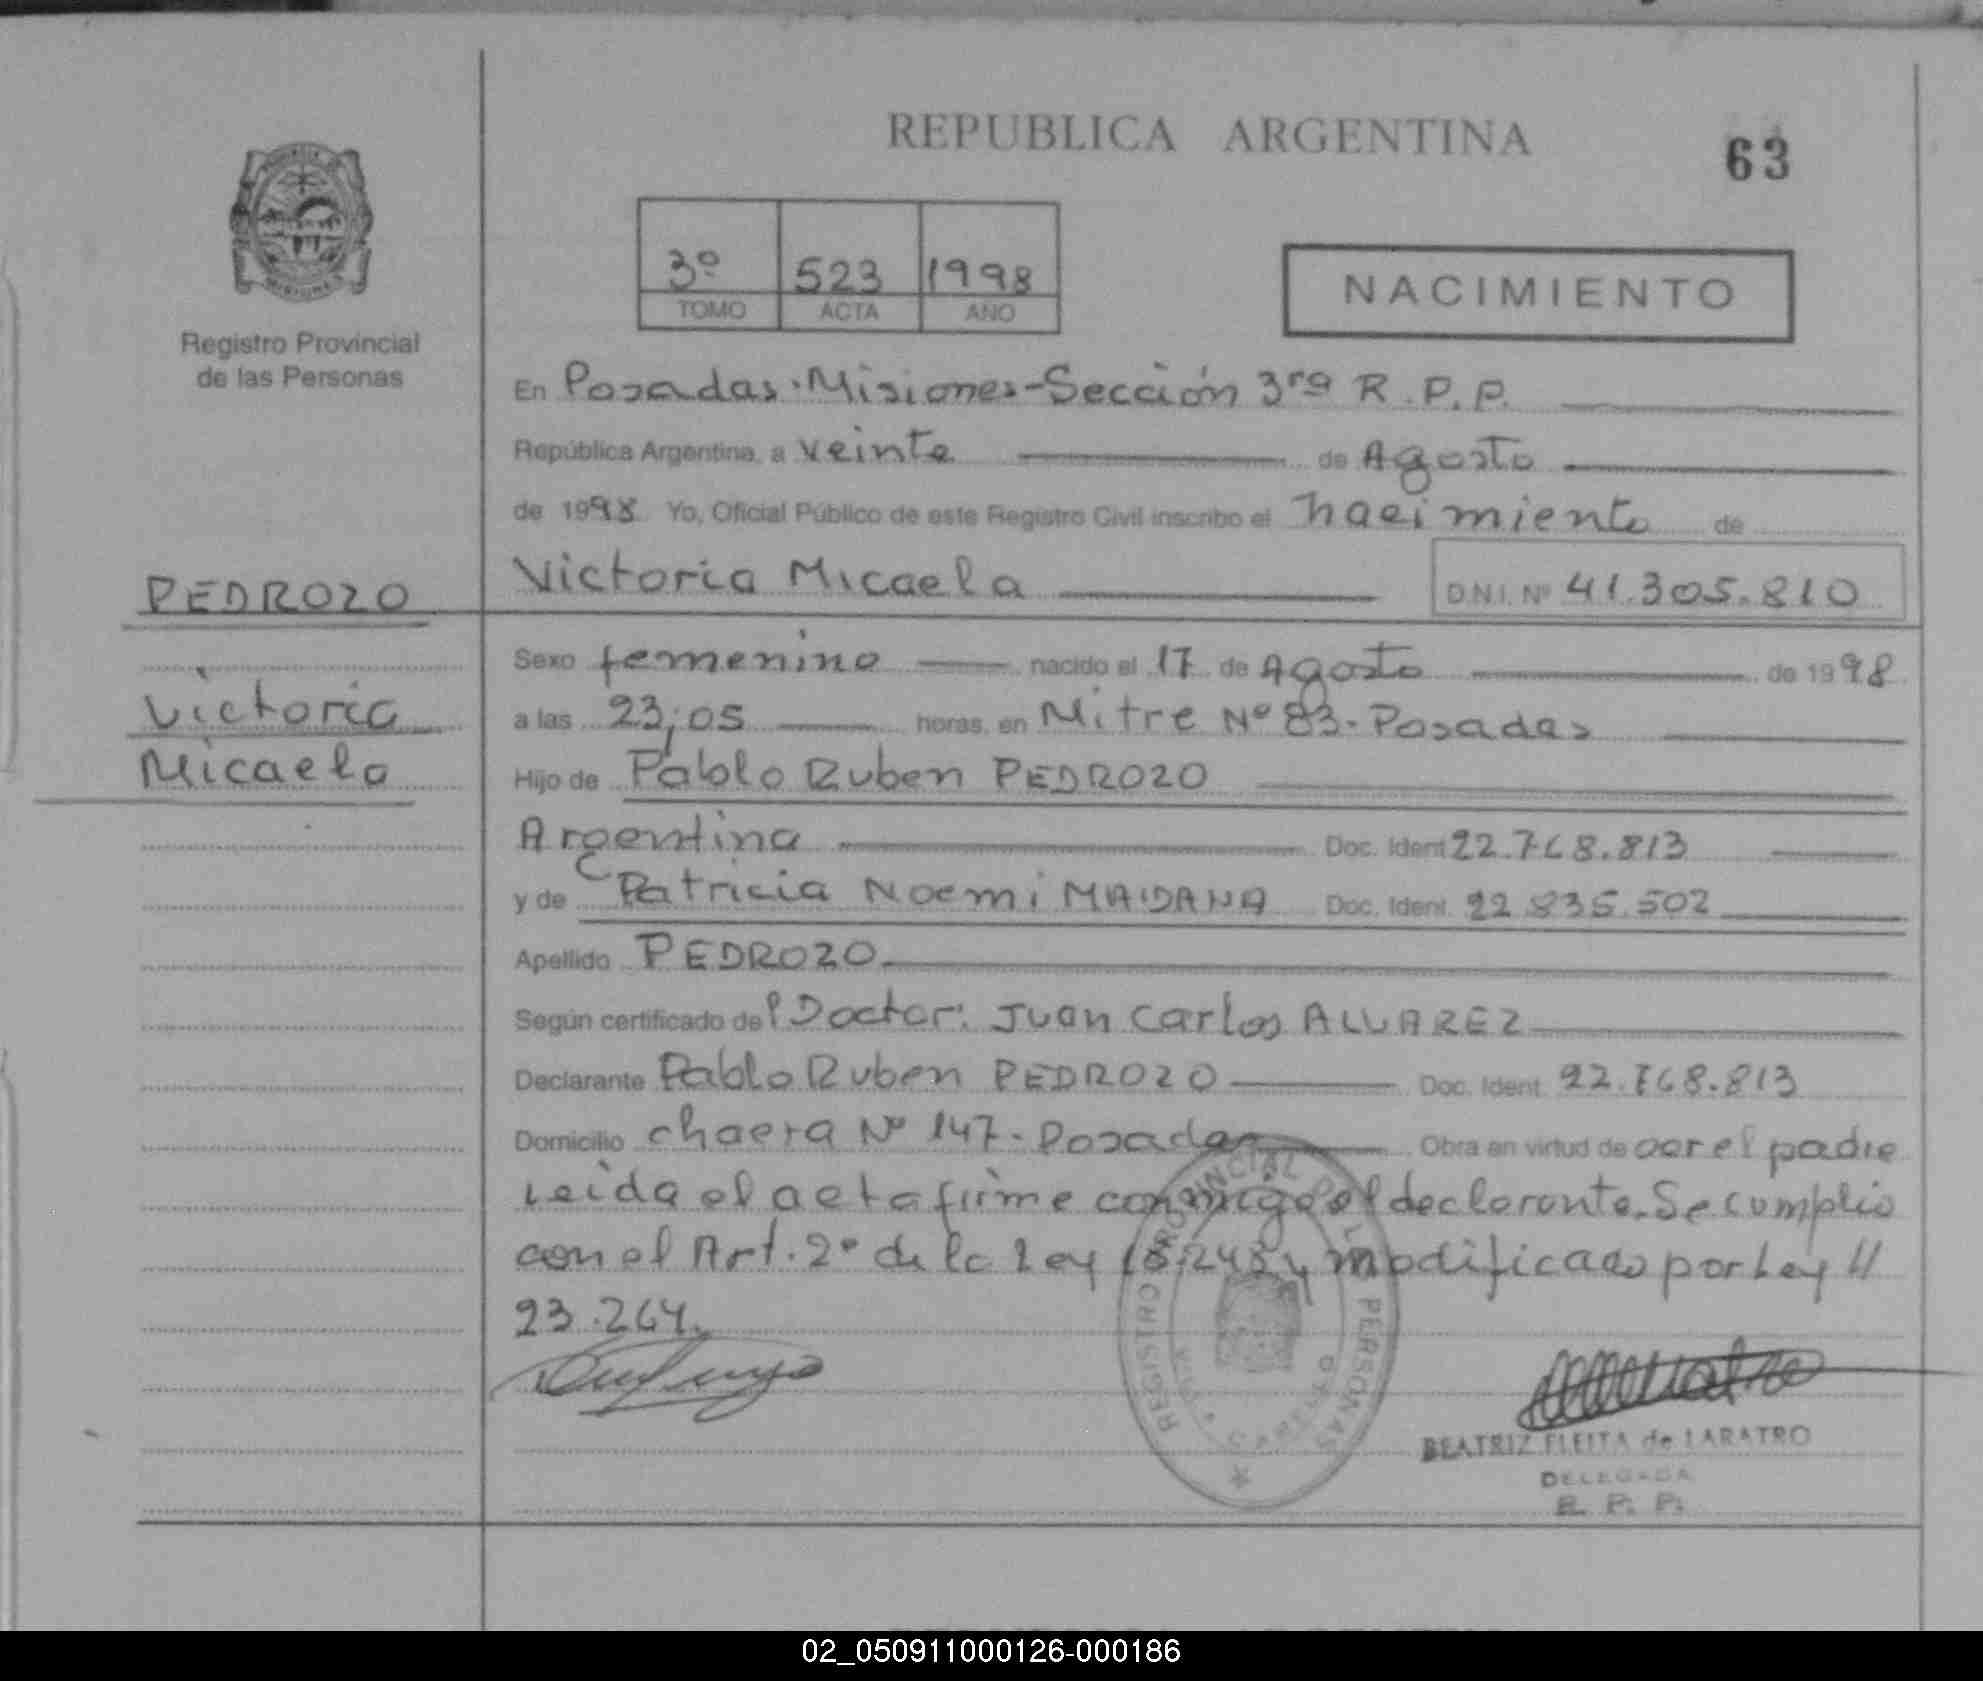 REPUBLICA ARGENTINA
63
3º 523 1998
TOMO ACTA AÑO
NACIMIENTO
Registro Provincial
de las Personas
En Posadas-Misiones-Sección 3ra R.P.P.
República Argentina, a veinte de Agosto
de 1998 Yo, Oficial Público de este Registro Civil inscribo el nacimiento de
Victoria Micaela D.N.I. Nº 41.305.810
PEDROZO
Victoria
Micaela
Sexo femenino nacido el 17 de Agosto de 1998
a las 23;05 horas, en Mitre Nº 83-Posadas
Hijo de Pablo Ruben PEDROZO
Argentina Doc. Ident 22.768.813
y de Patricia Noemi MAIDANA Doc. Ident. 22.835.502
Apellido PEDROZO
Según certificado del Doctor: Juan Carlos ALVAREZ
Declarante Pablo Ruben PEDROZO Doc. Ident. 22.768.813
Domicilio chacra Nº 147-Posadas Obra en virtud de ser el padre
Leida el acta firme conmigo el declarante. Se cumplio
con el Art. 2º de la Ley 18.248 y modificado por Ley //
23.264.
REGISTRO PROVINCIAL DE LAS PERSONAS
BEATRIZ FLEITA de LARATRO
DELEGADA
R. P. P.
02_050911000126-000186